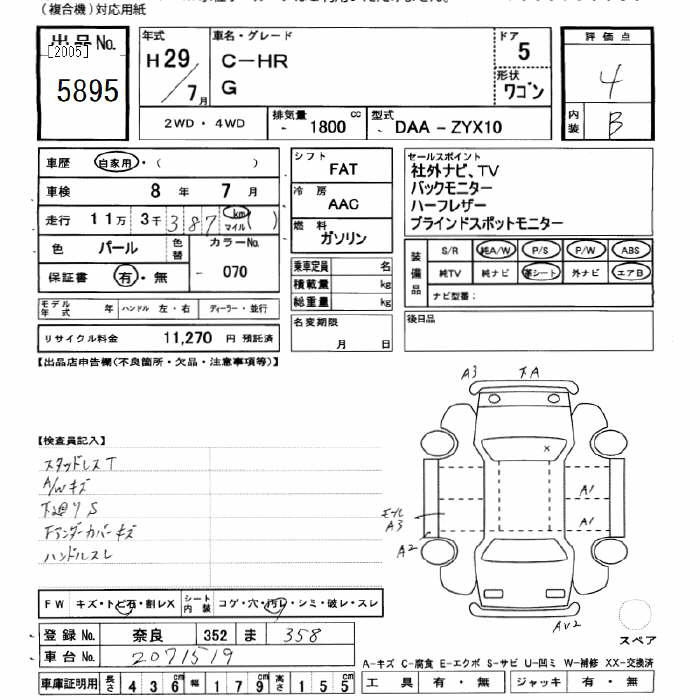 (複合機)対応用紙
出品No.
[2005]
5895
年式
H29/7月
車名・グレード
C-HR
G
ドア
5
形状
ワゴン
評価点
4
内装
B
2WD・4WD
排気量
1800
cc
型式
DAA-ZYX10
車歴 自家用・( )
車検 8年 7月
走行 11万 3千 387 km マイル ( )
色 パール 色替 カラーNo.
保証書 有・無 - 070
モデル年式 年 ハンドル 左・右 ディーラー・並行
リサイクル料金 11,270 円 預託済
シフト
FAT
冷房
AAC
燃料
ガソリン
乗車定員 名
積載量 kg
総重量 kg
名変期限
月 日
セールスポイント
社外ナビ、TV
バックモニター
ハーフレザー
ブラインドスポットモニター
装備品
S/R 純A/W P/S P/W ABS
純TV 純ナビ 革シート 外ナビ エアB
ナビ型番:
後日品
【出品店申告欄(不良箇所・欠品・注意事項等)】
【検査員記入】
スタッドレスT
A/Wキズ
下廻りS
Fアンダーカバーキズ
ハンドルスレ
A3 下A
X
A1
A1
モール
A3
A2
AV2
スペア
FW キズ・トビ石・割レX シート内装 コゲ・穴・汚レ・シミ・破レ・スレ
登録No. 奈良 352 ま 358
車台No. 2071519
車庫証明用 長さ 436cm 幅 179cm 高さ 155cm
A-キズ C-腐食 E-エクボ S-サビ U-凹ミ W-補修 XX-交換済
工具 有・無 ジャッキ 有・無